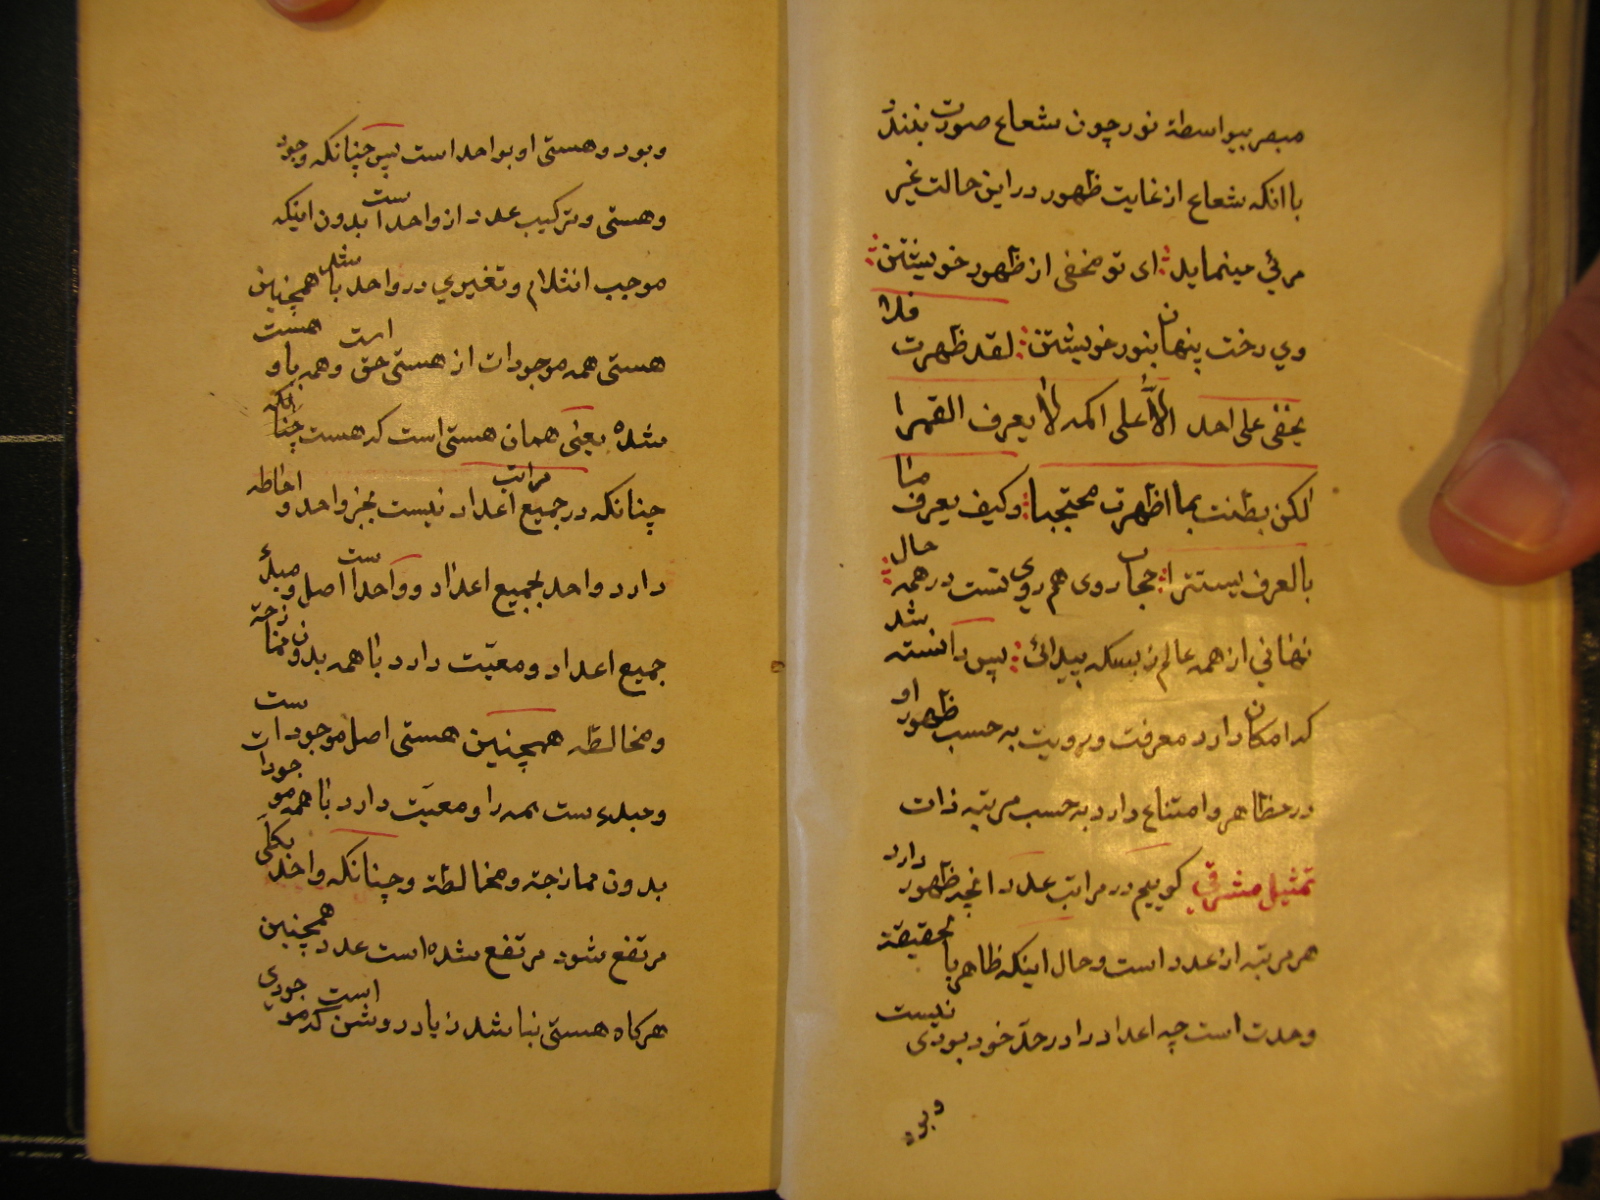 مبصر بیواسطهٔ نور چون شعاع صورت بندد
با انکه شعاع از غایت ظهور در این حالت غیر
مرئي مینماید ؛ ای تو مخفی از ظهور خویشتن ؛
وي رخت پنهان بنور خویشتن ؛ لقد ظهرت فلا
یخفی علی احد الا علی اکمه لا یعرف القمرا
لکن بطنت بما اظهرت محتجبا ؛ وکیف یعرف من
بالعرف یستترا ؛ حجاب روی هم روی تست در همه حال ؛
نهاني از همه عالم ز بسکه پیدائ ؛ پس دانسته شد
که امکان دارد معرفت و رویت به حسب ظهور او
در مظاهر و امتناع دارد به حسب مرتبه ذات
تمثیل مشرقي کوییم در مراتب عدد انچه ظهور دارد
هر مرتبه از عدد است وحال اینکه ظاهر بالحقیقة
وحدت است چه اعداد را در حدّ خود بودی نیست
وبود
وبود وهستی او بواحد است پس چنانکه وجود
وهستی وترکیب عدد از واحد است بدون اینکه
موجب انثلام وتغییري در واحد باشد همچنین
هستی همه موجودات از هستی حق است وهمه باو هست
شده یعنی همان هستی است که هست چنانکه
چنانکه در جمیع مراتب اعداد نیست بجز واحد و احاطه
دارد واحد بجمیع اعداد و واحد است اصل ومبدٔ
جمیع اعداد ومعیّت دارد با همه بدون ممازجة
ومخالطه همچنین هستی اصل موجودات ست
ومبدء ست همه را ومعیّت دارد با همه موجودات
بدون ممازجة ومخالطة وچنانکه واحد بکلّی
مرتفع شود مرتفع شده است عدد همچنین
هرکاه هستی نباشد زیاد روشن است که موجودی